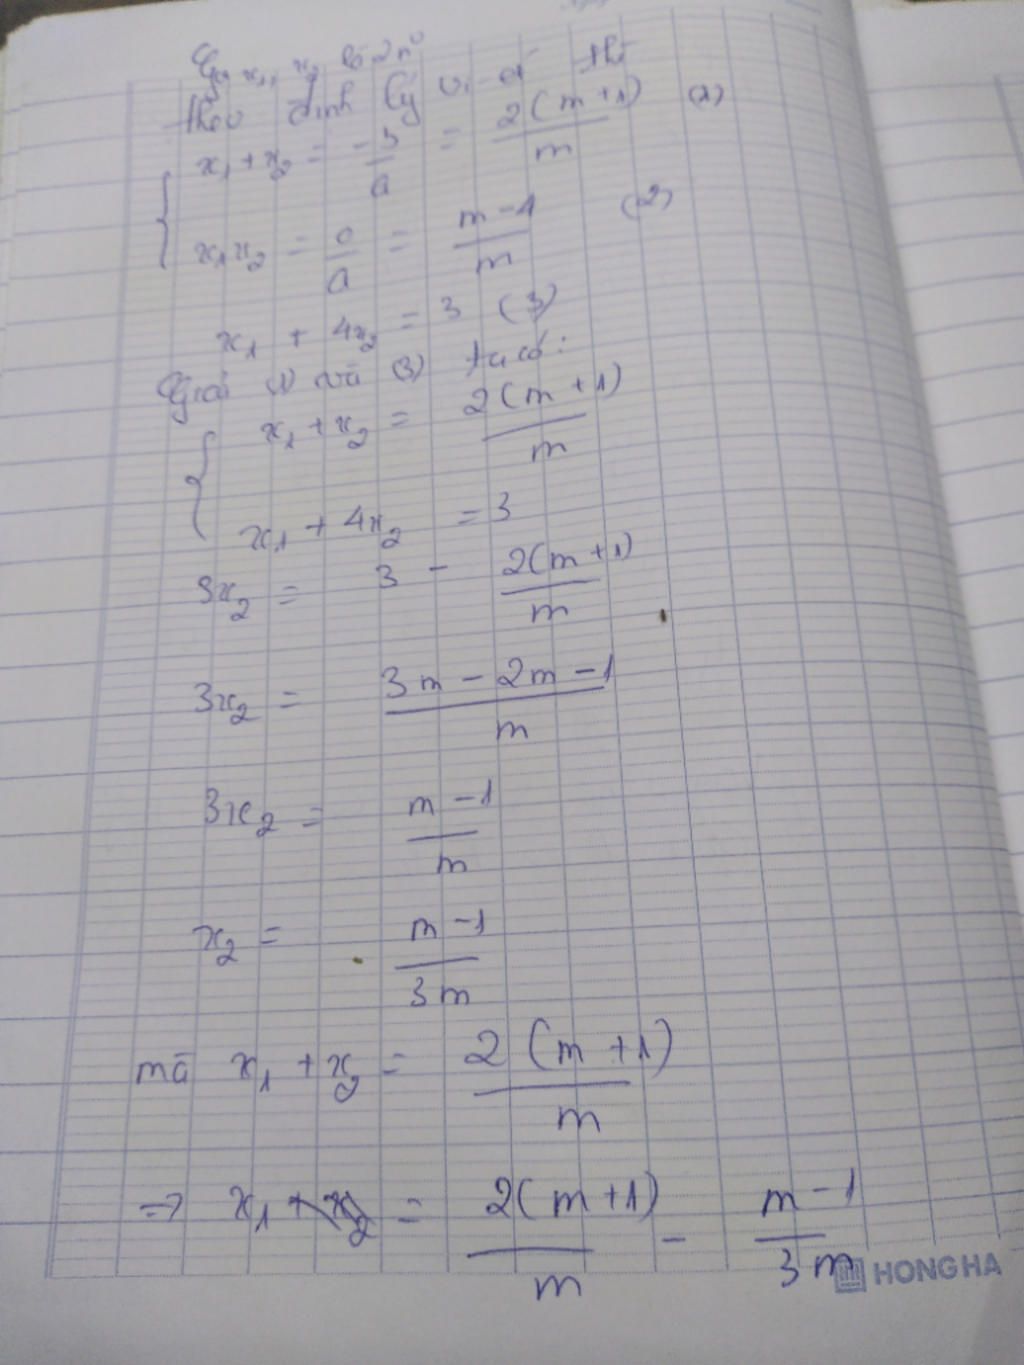 Gọi x₁, x₂ là 2 n⁰
theo định lý vi-ét thì
x₁ + x₂ = -b/a = 2(m+1)/m (1)
x₁x₂ = c/a = m-1/m (2)
x₁ + 4x₂ = 3 (3)
Giải (1) và (3) ta có:
x₁ + x₂ = 2(m+1)/m
x₁ + 4x₂ = 3
3x₂ = 3 - 2(m+1)/m
3x₂ = 3m - 2m - 1/m
3x₂ = m-1/m
x₂ = m-1/3m
mà x₁ + x₂ = 2(m+1)/m
=> x₁ + x₂ = 2(m+1)/m - m-1/3m
HONG HA